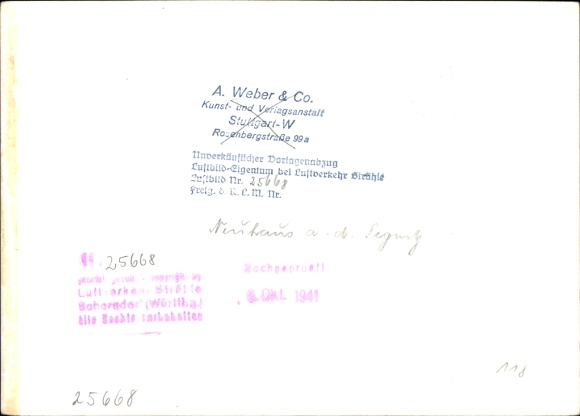 A. Weber & Co.
Kunst- und Verlagsanstalt
Stuttgart-W
Rosenbergstraße 99a
Unverkäuflicher Vorlagenabzug
Luftbild-Eigentum bei Luftverkehr Strähle
Luftbild Nr. 25668
Freig. d. R.L.M. Nr.
Neuhaus a. d. Pegnitz
25668
copyright by
Luftverkehr Strähle
Schorndorf (Württbg)
alle Rechte vorbehalten
Nachgeprüft
8. Okt. 1941
118
25668